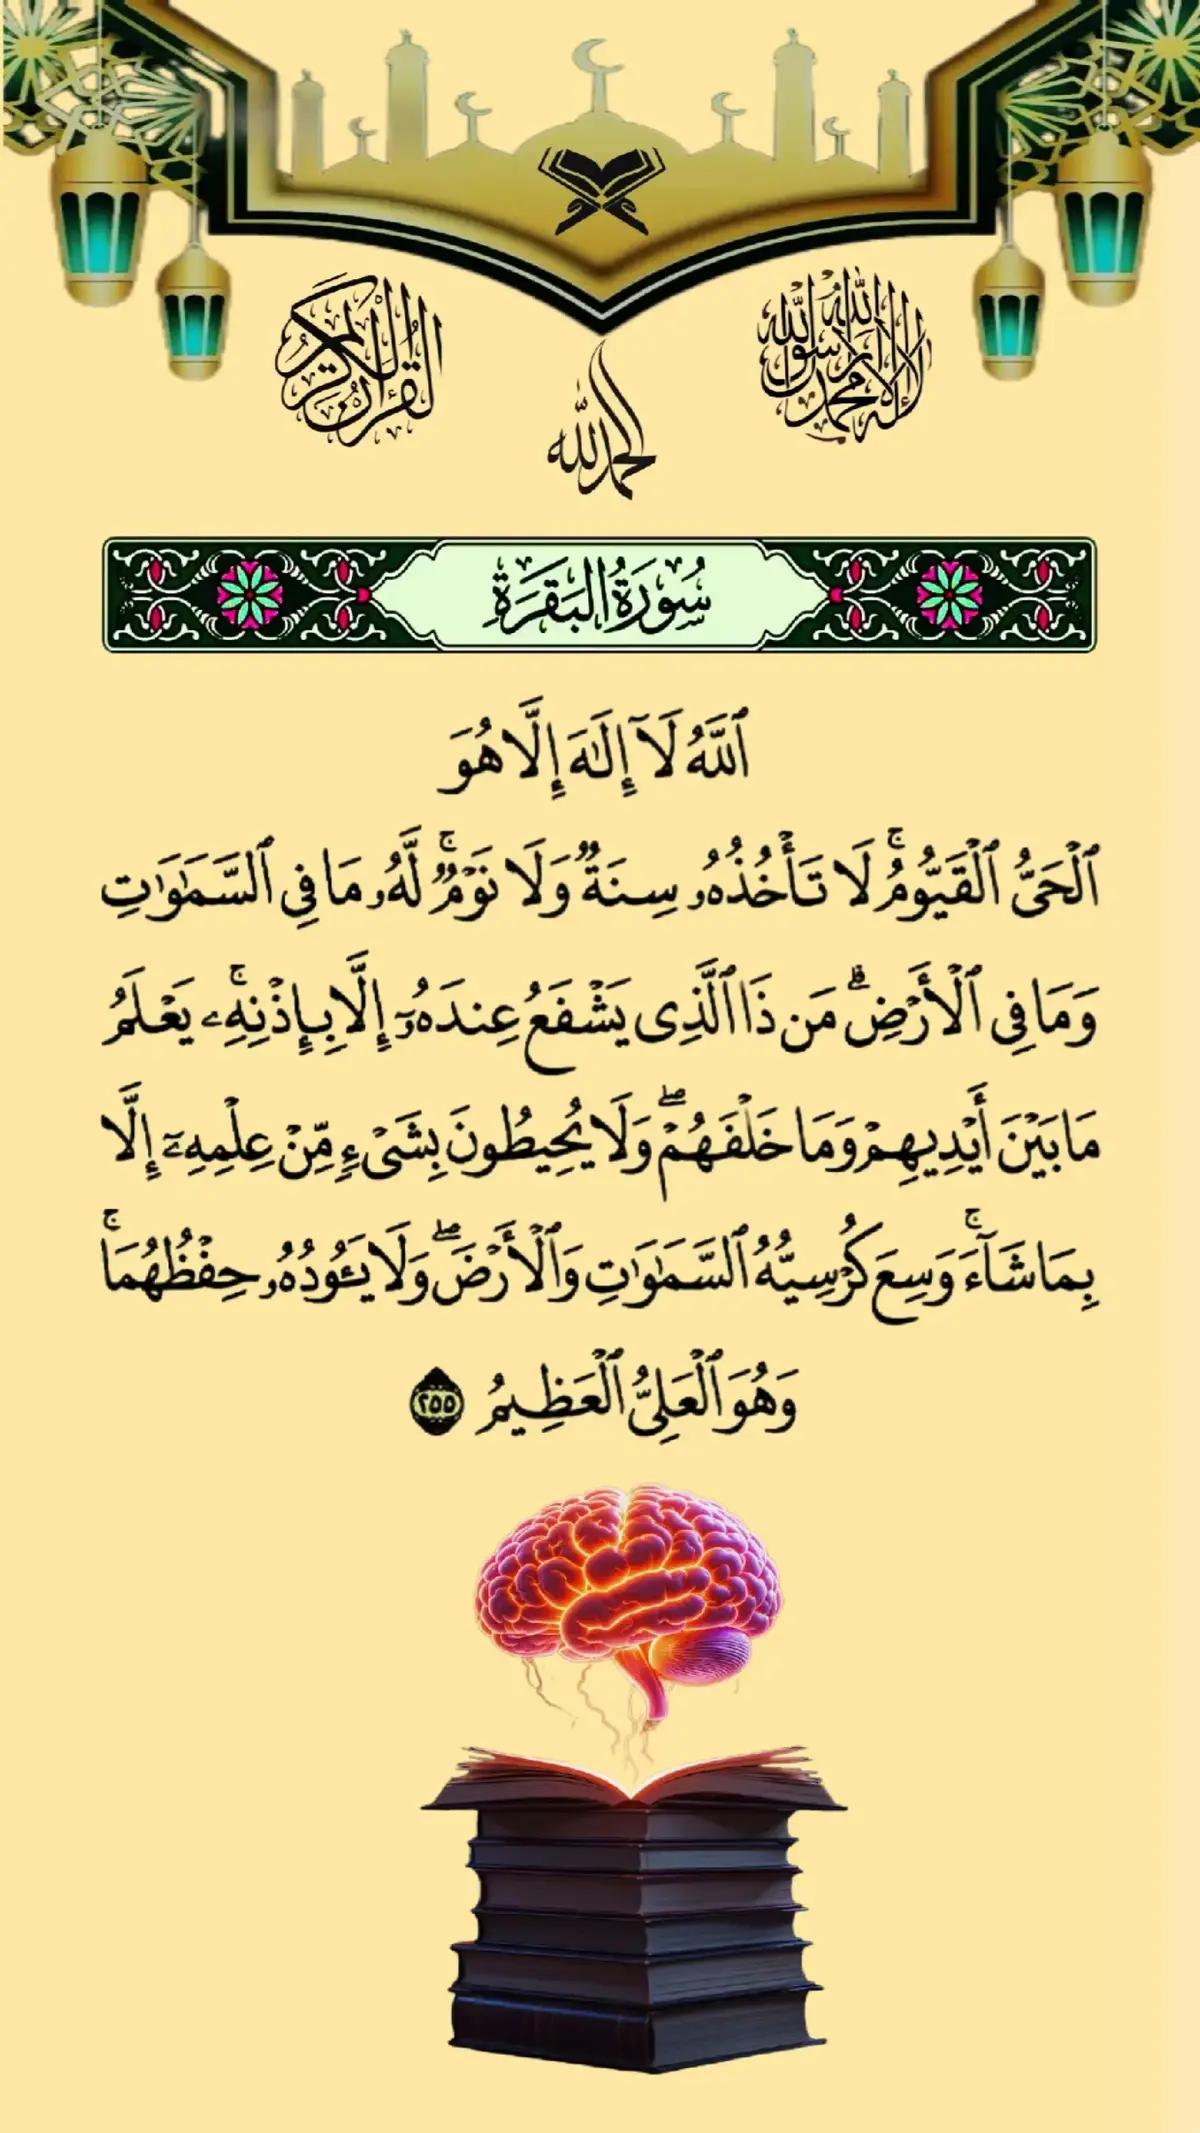 لا إله إلا الله محمد رسول الله
القرآن الكريم
الحمد لله
سُورَةُ البَقَرَةِ
ٱللَّهُ لَآ إِلَٰهَ إِلَّا هُوَ
ٱلْحَىُّ ٱلْقَيُّومُ ۚ لَا تَأْخُذُهُۥ سِنَةٌ وَلَا نَوْمٌ ۚ لَّهُۥ مَا فِى ٱلسَّمَٰوَٰتِ
وَمَا فِى ٱلْأَرْضِ ۗ مَن ذَا ٱلَّذِى يَشْفَعُ عِندَهُۥٓ إِلَّا بِإِذْنِهِۦ ۚ يَعْلَمُ
مَا بَيْنَ أَيْدِيهِمْ وَمَا خَلْفَهُمْ ۖ وَلَا يُحِيطُونَ بِشَىْءٍ مِّنْ عِلْمِهِۦٓ إِلَّا
بِمَا شَآءَ ۚ وَسِعَ كُرْسِيُّهُ ٱلسَّمَٰوَٰتِ وَٱلْأَرْضَ ۖ وَلَا يَـُٔودُهُۥ حِفْظُهُمَا ۚ
وَهُوَ ٱلْعَلِىُّ ٱلْعَظِيمُ ٢٥٥